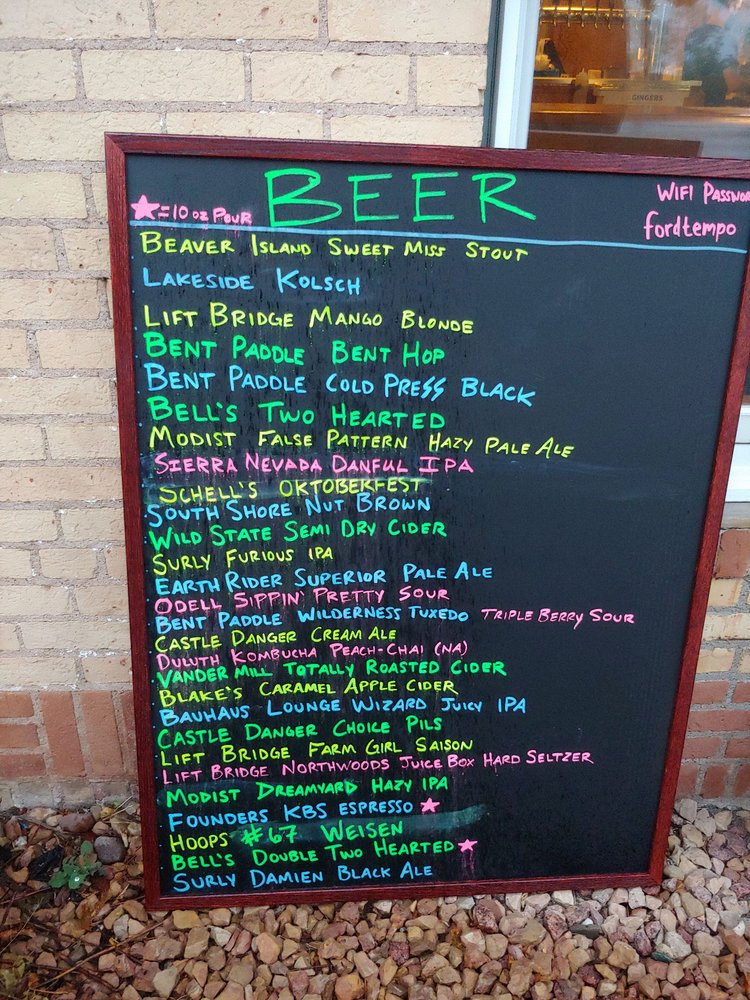 GINGERS
BEER
★=10 oz POUR
WIFI PASSWO
fordtempo
BEAVER ISLAND SWEET MISS STOUT
LAKESIDE KOLSCH
LIFT BRIDGE MANGO BLONDE
BENT PADDLE BENT HOP
BENT PADDLE COLD PRESS BLACK
BELL'S TWO HEARTED
MODIST FALSE PATTERN HAZY PALE ALE
SIERRA NEVADA DANFUL IPA
SCHELL'S OKTOBERFEST
SOUTH SHORE NUT BROWN
WILD STATE SEMI DRY CIDER
SURLY FURIOUS IPA
EARTH RIDER SUPERIOR PALE ALE
ODELL SIPPIN' PRETTY SOUR
BENT PADDLE WILDERNESS TUXEDO TRIPLE BERRY SOUR
CASTLE DANGER CREAM ALE
DULUTH KOMBUCHA PEACH-CHAI (NA)
VANDER MILL TOTALLY ROASTED CIDER
BLAKE'S CARAMEL APPLE CIDER
BAUHAUS LOUNGE WIZARD JUICY IPA
CASTLE DANGER CHOICE PILS
LIFT BRIDGE FARM GIRL SAISON
LIFT BRIDGE NORTHWOODS JUICE BOX HARD SELTZER
MODIST DREAMYARD HAZY IPA
FOUNDERS KBS ESPRESSO ★
HOOPS #67 WEISEN
BELL'S DOUBLE TWO HEARTED ★
SURLY DAMIEN BLACK ALE